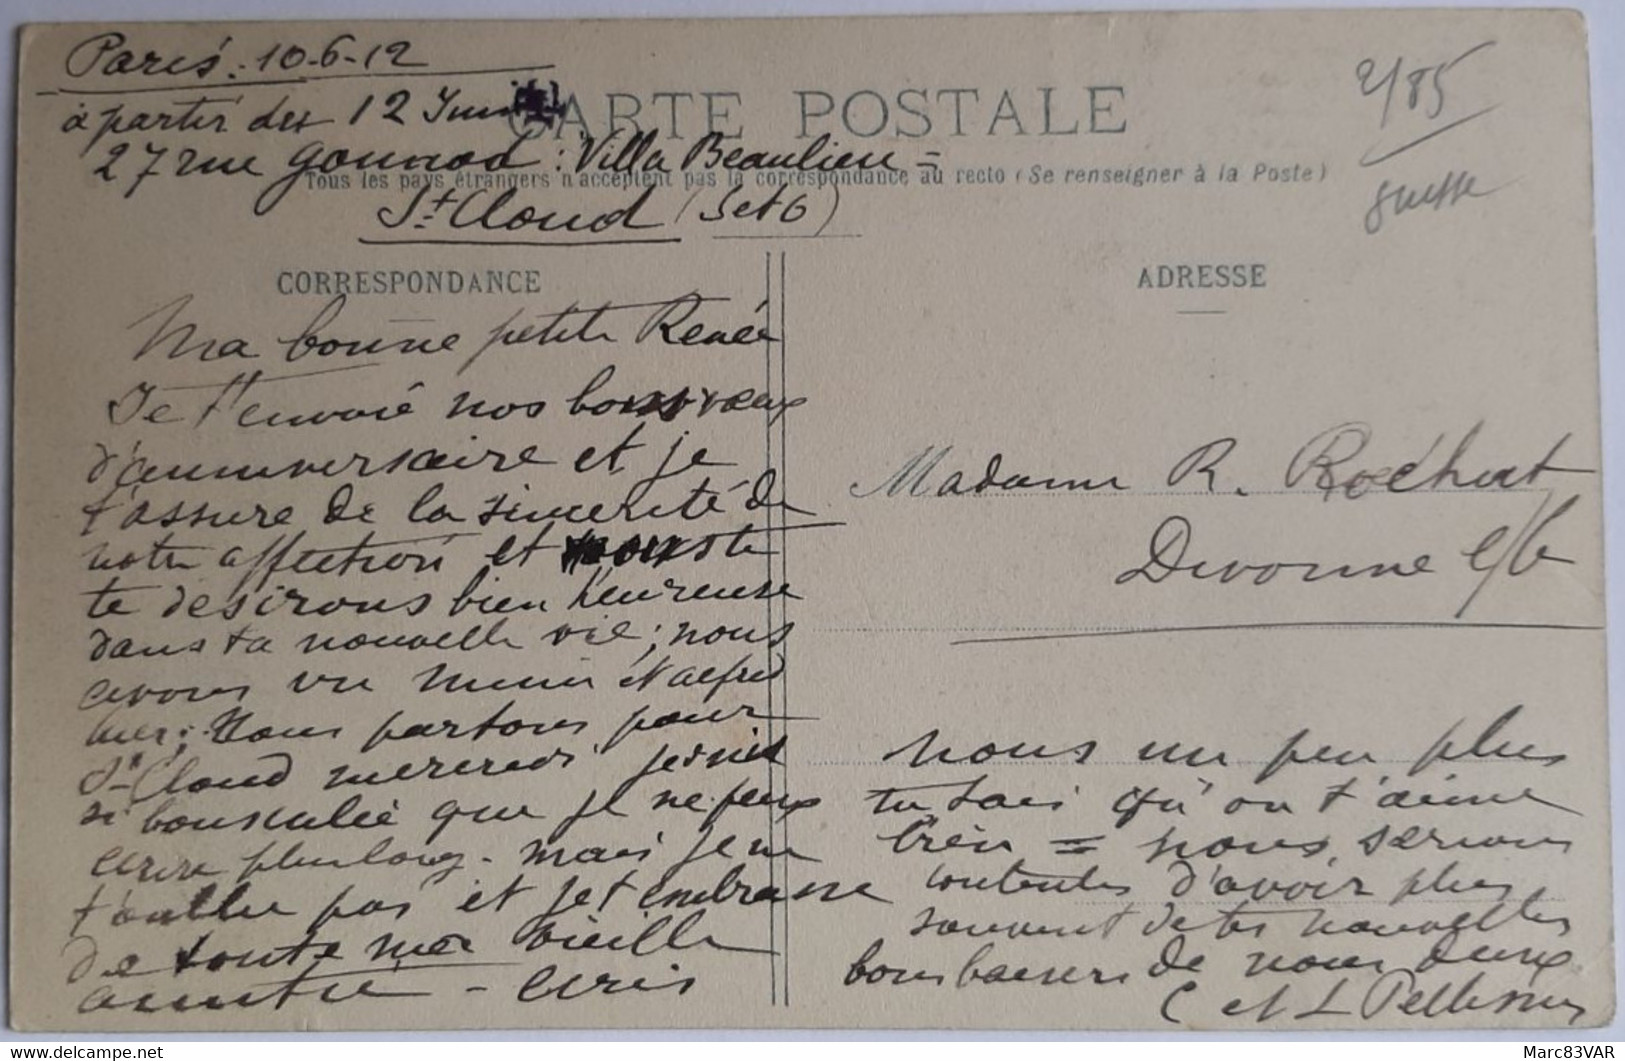 Paris. 10-6-12
à partir du 12 Juin
CARTE POSTALE
27 rue Gounod : Villa Beaulieu =
Tous les pays étrangers n'acceptent pas la correspondance au recto (Se renseigner à la Poste)
St. Cloud (Set O)
2/85
CORRESPONDANCE
ADRESSE
Ma bonne petite Renée
Je t'envoie nos bons vœux
d'anniversaire et je
t'assure de la sincérité de
notre affection et
te désirons bien heureuse
dans ta nouvelle vie; nous
avons vu et alfred
hier; Nous partons pour
St Cloud mercredi je suis
si bousculée que je ne peux
écrire plus long - mais je ne
t'oublie pas et je t'embrasse
de toute ma vieille
amitié - écris
Madame R. Rochat
Divonne
nous un peu plus
tu sais qu'on t'aime
bien = nous serions
contentes d'avoir plus
souvent de tes nouvelles
bons baisers de nous deux
C et L
Marc83VAR